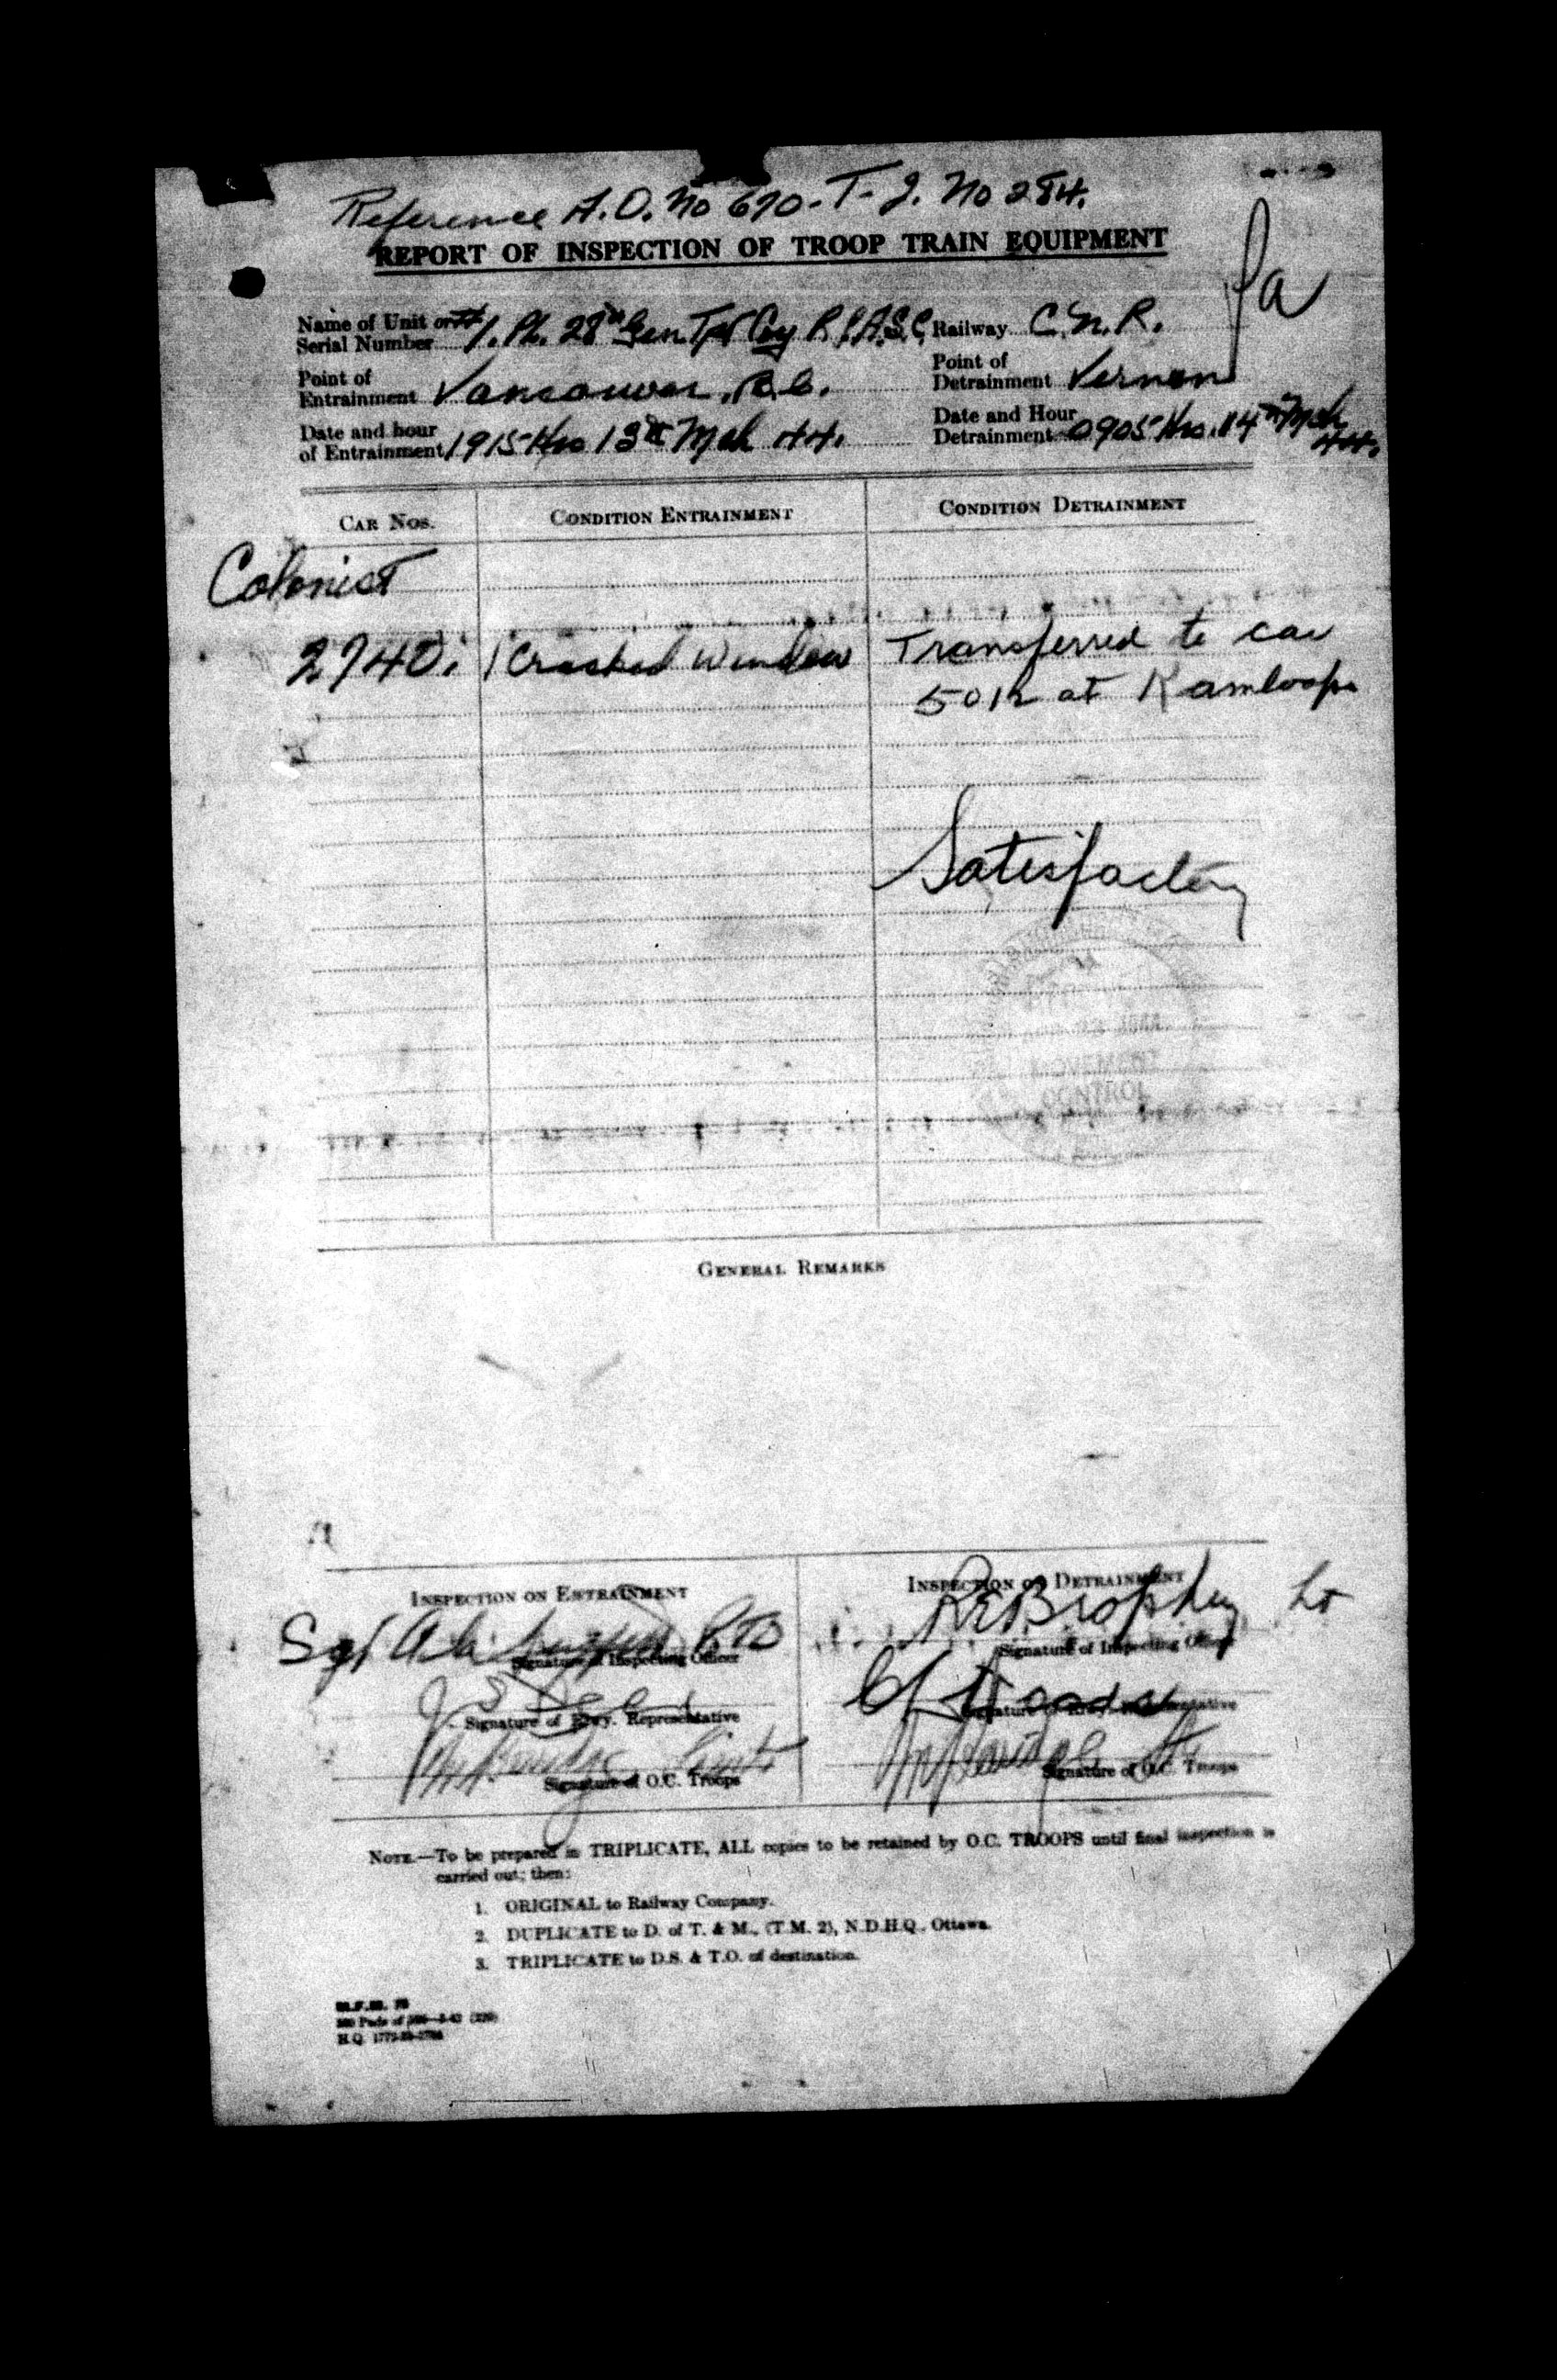 Reference A.O. No 690-T-J. No 284.
REPORT OF INSPECTION OF TROOP TRAIN EQUIPMENT
Pa
Name of Unit or
Serial Number 1. Pl. 28th Gen. Tpt Coy R.C.A.S.C. Railway C.N.R.
Point of Entrainment Vancouver, B.C. Point of Detrainment Vernon
Date and hour of Entrainment 1915 Hrs 13th Mch 44. Date and Hour Detrainment 0905 Hrs. 14th Mch 44.
CAR NOS. CONDITION ENTRAINMENT CONDITION DETRAINMENT
Colonist
2740. 1 Cracked Window Transferred to car
5012 at Kamloops
Satisfactory
MOVEMENT
CONTROL
GENERAL REMARKS
INSPECTION ON ENTRAINMENT INSPECTION ON DETRAINMENT
Sgt R.E. Brophy Lt
Signature of Inspecting Officer Signature of Inspecting Officer
Signature of Rwy. Representative Signature of Rwy. Representative
Signature of O.C. Troops Signature of O.C. Troops
NOTE.—To be prepared in TRIPLICATE, ALL copies to be retained by O.C. TROOPS until final inspection is
carried out; then:
1. ORIGINAL to Railway Company.
2. DUPLICATE to D. of T. & M., (T.M. 2), N.D.H.Q., Ottawa.
3. TRIPLICATE to D.S. & T.O. of destination.
H.Q.